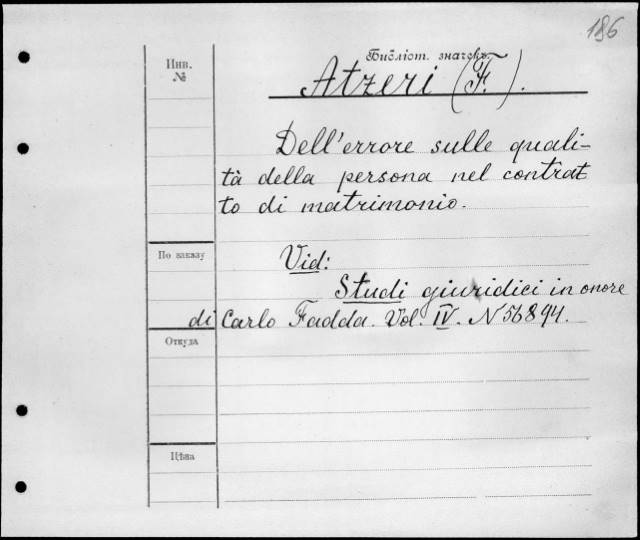 186
Библіот. значекъ.
Инв.
№
Atzeri (F.).
Dell'errore sulle quali-
tà della persona nel contrat
to di matrimonio.
По заказу
Vid:
Studi giuridici in onore
di Carlo Fadda. Vol. IV. N 56894.
Откуда
Цѣна